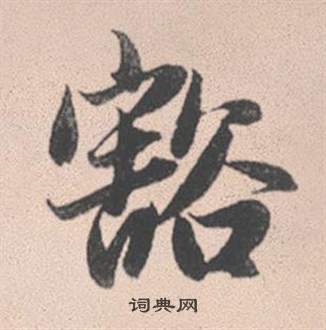 豁
词典网